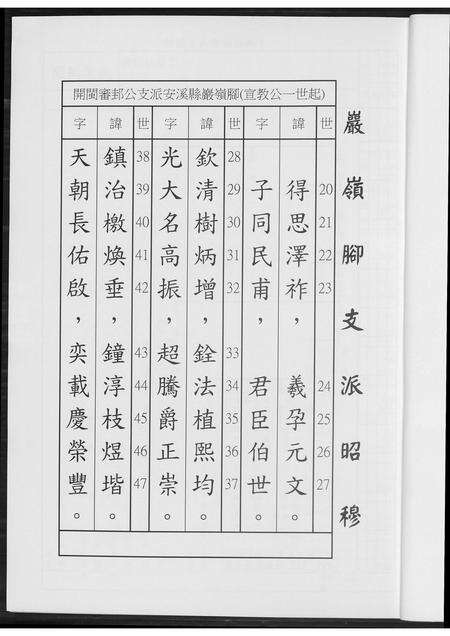 巖嶺腳支派昭穆
開閩審邽公支派安溪縣巖嶺腳(宣教公一世起)
世 諱 字 世 諱 字 世 諱 字
20 21 22 23 24 25 26 27
得思澤祚，羲孕元文。
子同民甫，君臣伯世。
28 29 30 31 32 33 34 35 36 37
欽清樹炳增，銓法植熙均。
光大名高振，超騰爵正崇。
38 39 40 41 42 43 44 45 46 47
鎮治檄煥垂，鐘淳枝煜堦。
天朝長佑啟，奕載慶榮豐。